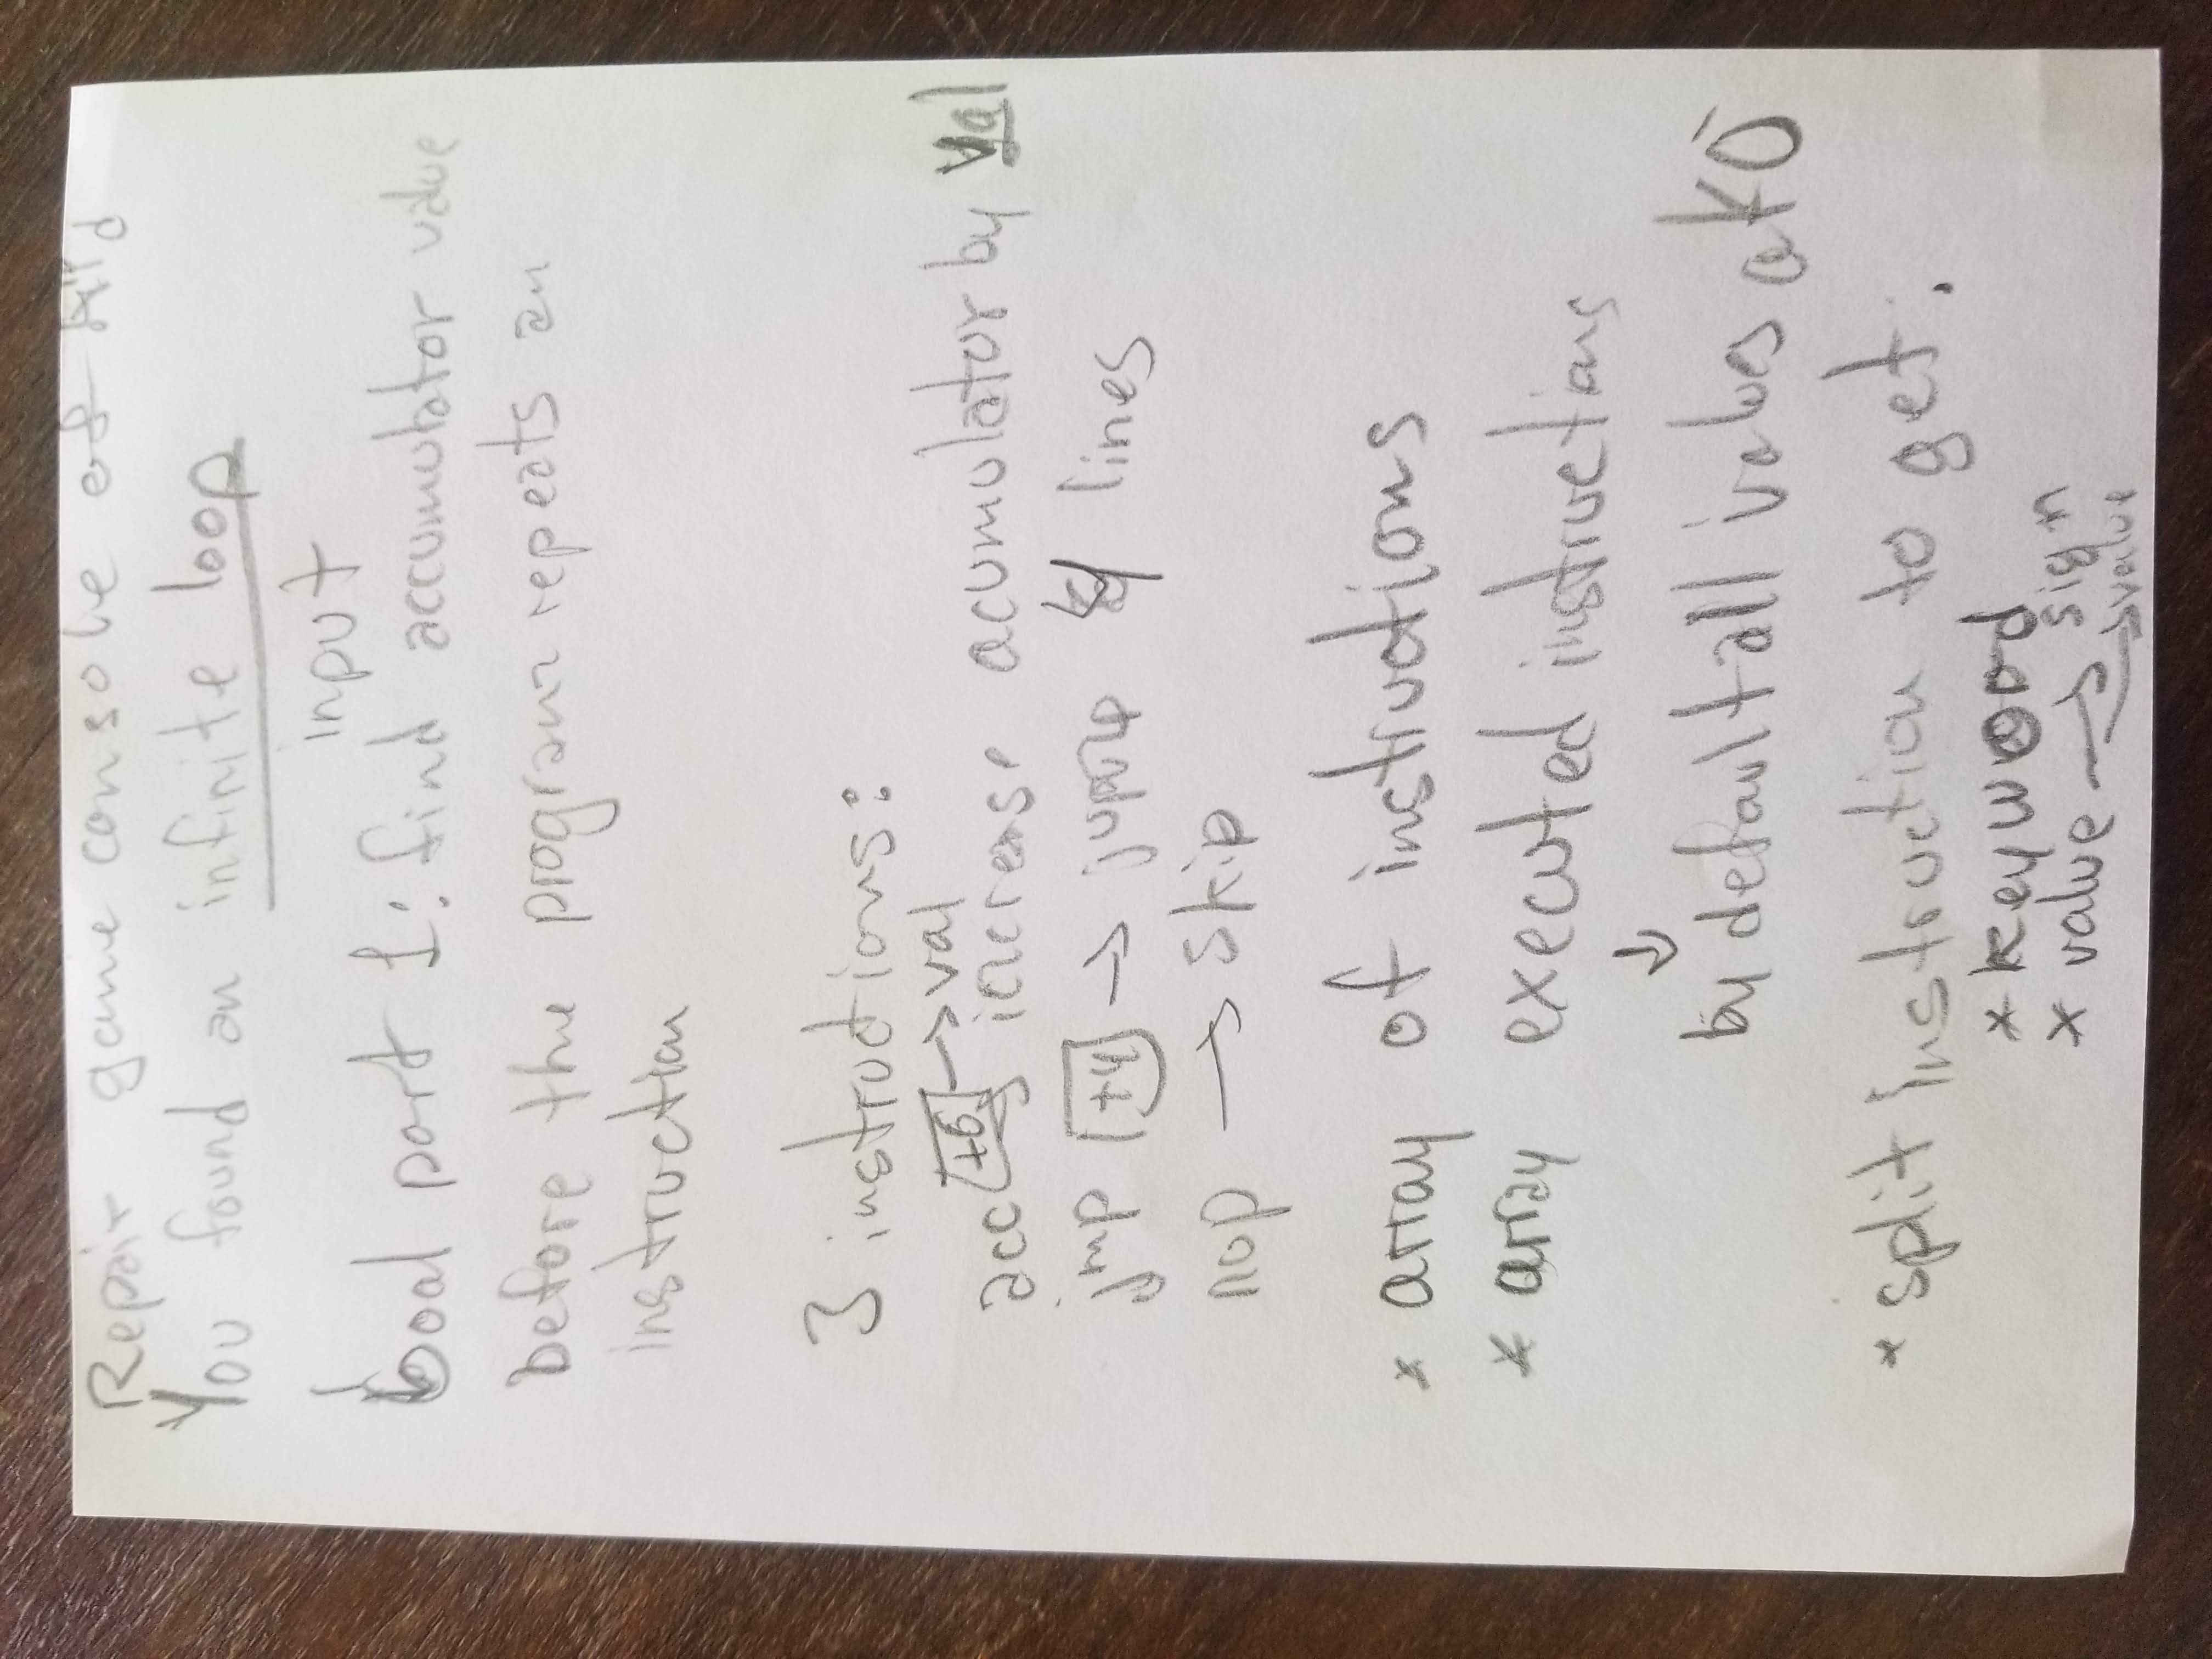 Repair game console of kid
You found an infinite loop
input
Goal part 1: find accumulator value
before the program repeats an
instruction
3 instructions:
acc +6 → val
→ increase acumulator by val
jmp +4 → jump 4 lines
nop → skip
* array of instructions
* array executed instructions
↓
by default all values at 0
* split instruction to get:
* keyword
* value → sign
→ value